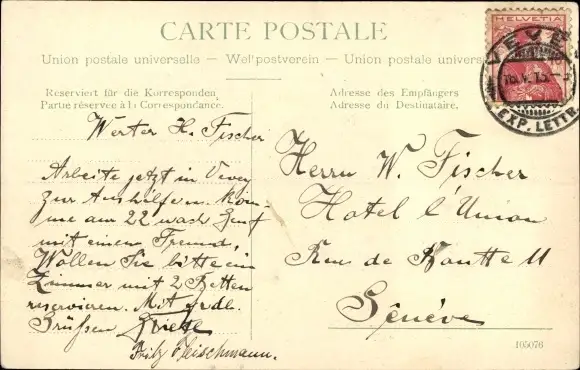 CARTE POSTALE
Union postale universelle – Weltpostverein – Union postale univers
Reserviert für die Korrespondenz
Partie réservée à la Correspondance.
Adresse des Empfängers
Adresse du Destinataire.
HELVETIA
VEVEY
EXP. LETTR.
Werter H. Fischer
Arbeite jetzt in Vevey
zur Aushilfe. Kom-
me am 22 nach Genf
mit einem Freund,
Wollen Sie bitte ein
Zimmer mit 2 Betten
reservieren. Mit frdl.
Grüßen
Fritz Fleischmann.
Herrn W. Fischer
Hotel l'Union
Rue de 11
Génève
105076